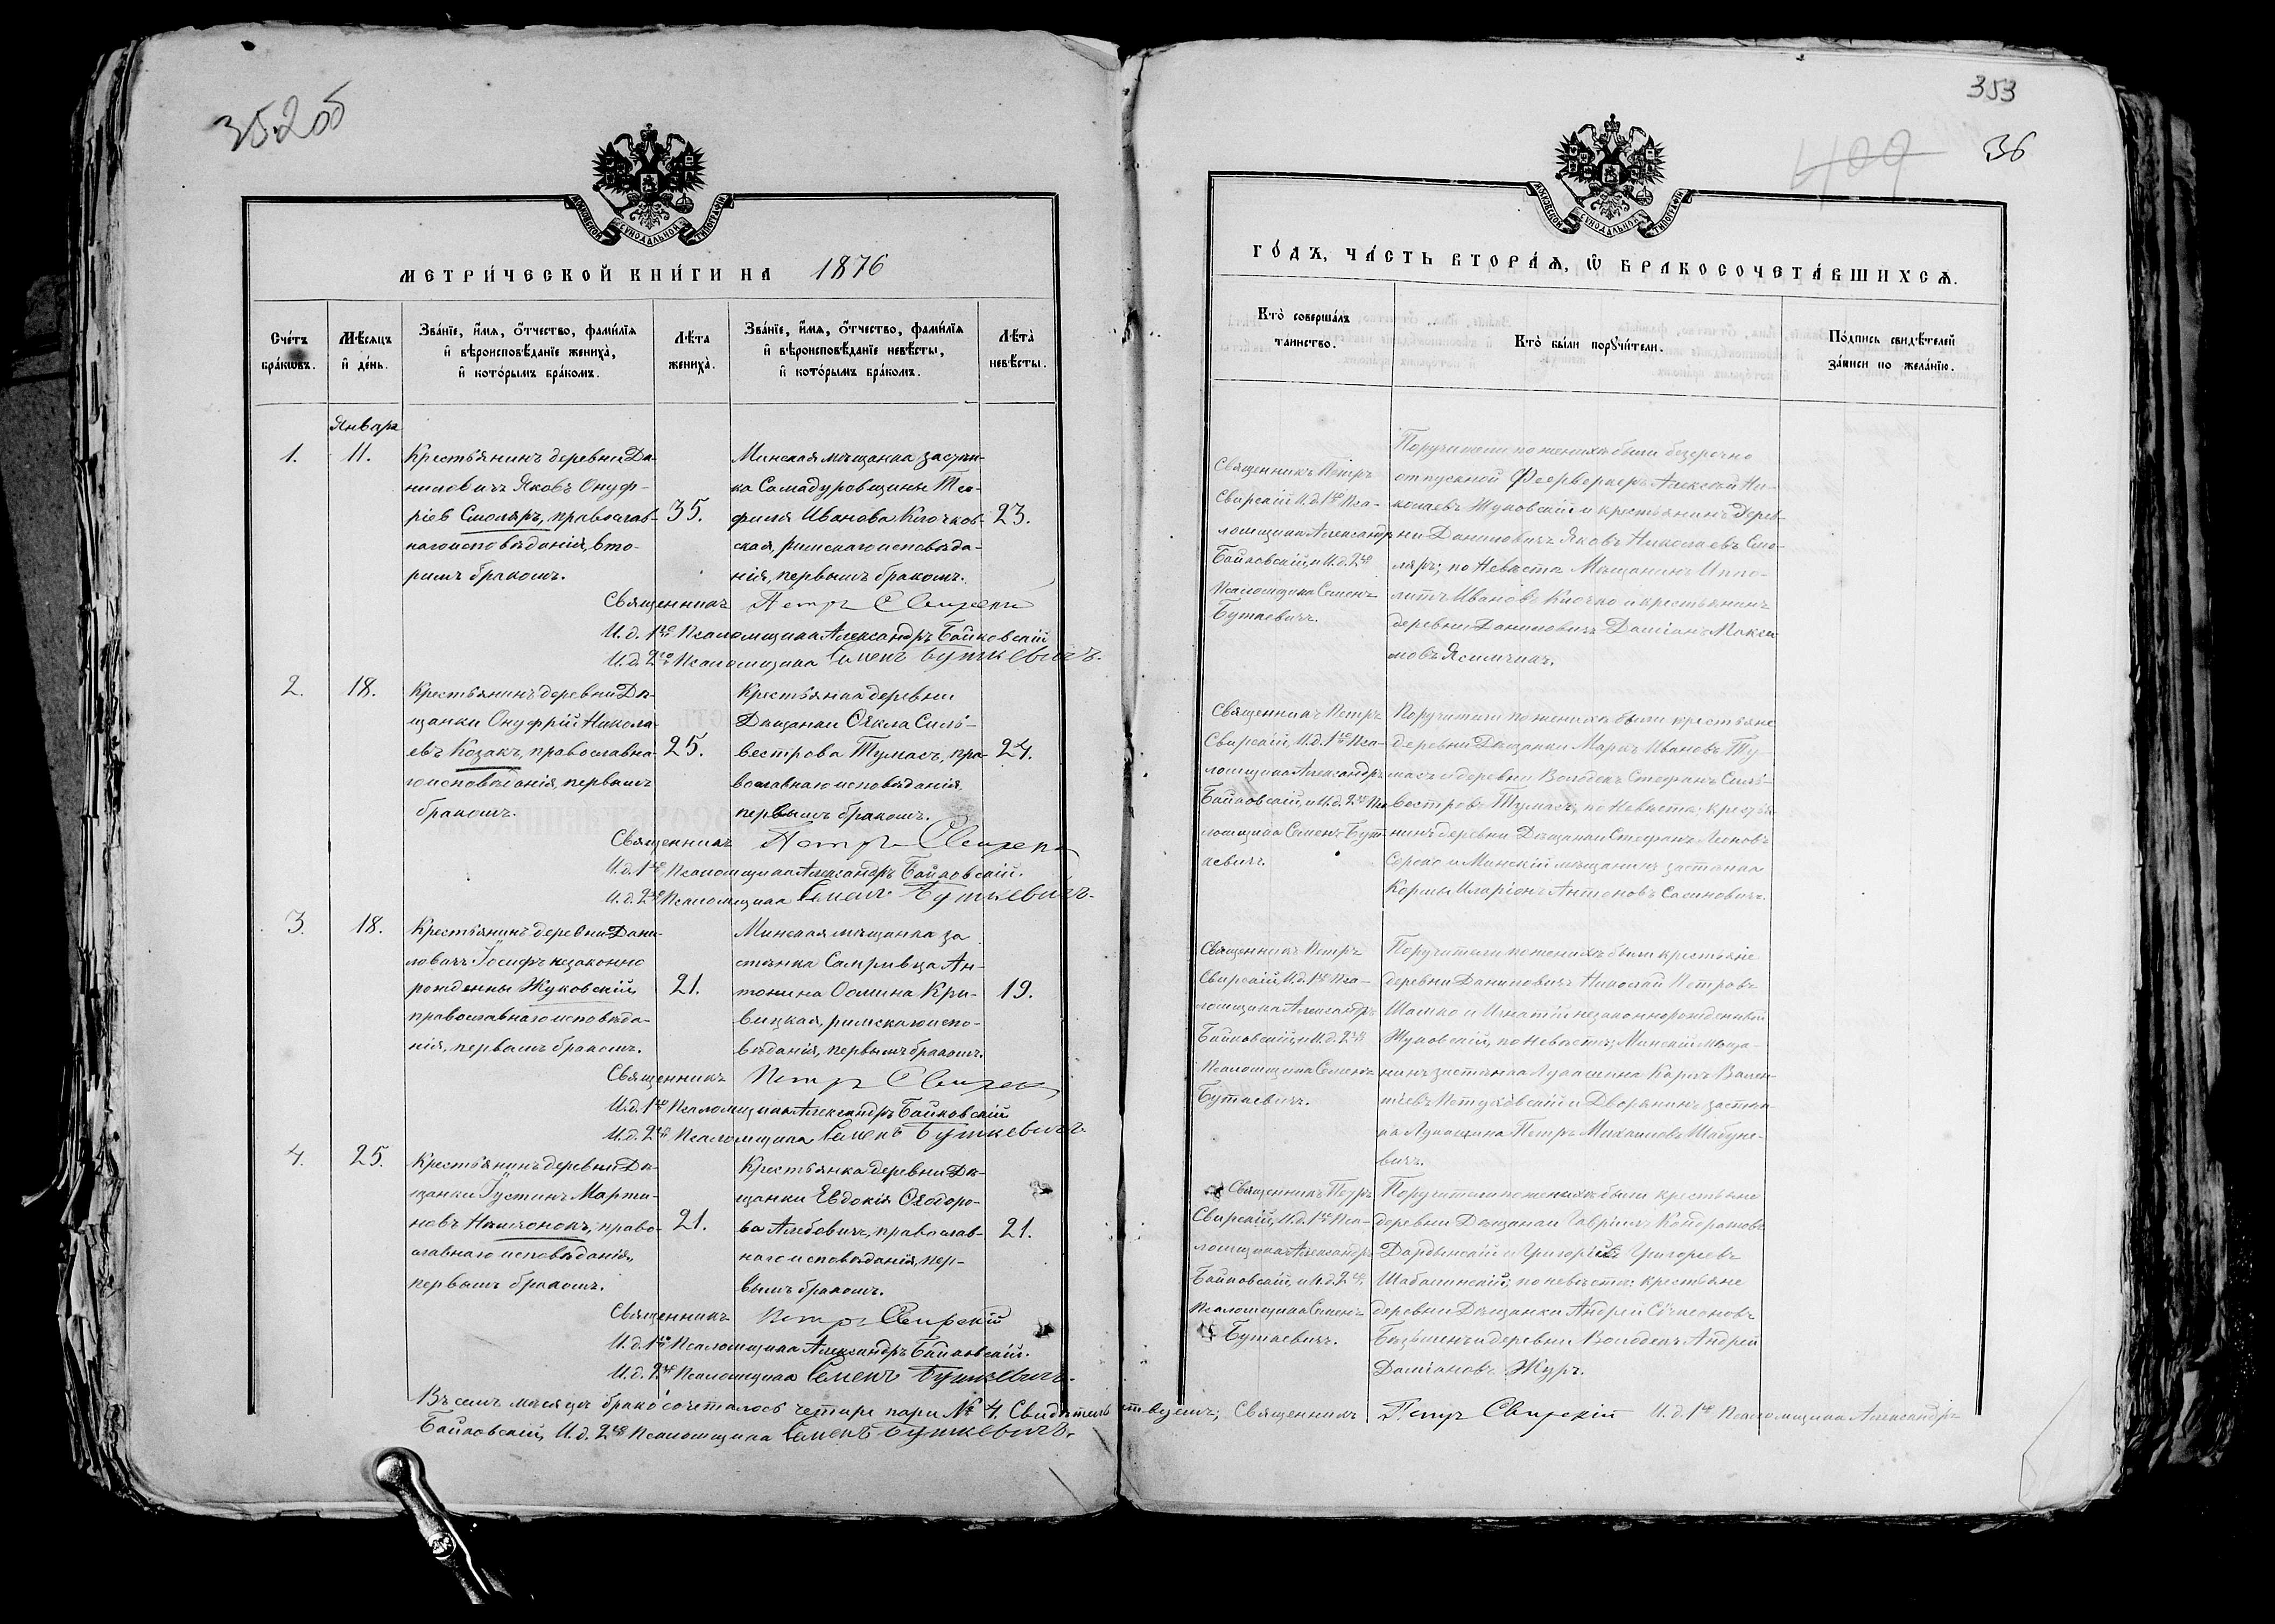 352об
МОСКОВСКОЙ СѴНОДАЛЬНОЙ ТИПОГРАФІИ
МЕТРИ́ЧЕСКОЙ КНИ́ГИ НА 1876
Сче́тъ бра́кωвъ.
Мѣ́сяцъ и҆ де́нь.
Зва́нїе, и҆́мѧ, ѻ҆́тчество, фами́лїѧ и҆ вѣроисповѣ́данїе жениха̀, и҆ кото́рымъ бра́комъ.
Лѣ́та жениха̀.
Зва́нїе, и҆́мѧ, ѻ҆́тчество, фами́лїѧ и҆ вѣроисповѣ́данїе невѣ́сты, и҆ кото́рымъ бра́комъ.
Лѣ́та невѣ́сты.
Январь
1. 11.
Крестьянинъ деревни Да-
ниловичъ Яковъ Онуф-
ріев Смоляръ, православ-
наго исповѣданія, вто-
рымъ бракомъ.
35.
Минская мѣщанка застѣн-
ка Самадуровщины Тео-
филія Иванова Клочков-
ская, римскаго исповѣда-
нія, первымъ бракомъ.
23.
Священникъ Петръ Свирскій
И. д. 1го Псаломщика Александръ Байковскій
И. д. 2го Псаломщика Семенъ Буткевичъ.
2. 18.
Крестьянинъ деревни Да-
щанки Онуфрій Никола-
евъ Козакъ, православна-
го исповѣданія, первымъ
бракомъ.
25.
Крестьянка деревни
Дащанки Ѳекла Силь-
вестрова Тумасъ, пра-
вославнаго исповѣданія
первымъ бракомъ.
24.
Священникъ Петръ Свирскій
И. д. 1го Псаломщика Александръ Байковскій.
И. д. 2го Псаломщика Семенъ Буткевичъ.
3. 18.
Крестьянинъ деревни Дани-
ловичъ Іосифъ незаконно
рожденны Жуковскій,
православнаго исповѣда-
нія, первымъ бракомъ.
21.
Минская мѣщанка за
стѣнка Антонина Осипа Кри-
вицкая, римскаго испо-
вѣданія, первымъ бракомъ.
19.
Священникъ Петръ Свирскій
И. д. 1го Псаломщика Александръ Байковскій
И. д. 2го Псаломщика Семенъ Буткевичъ.
4. 25.
Крестьянинъ деревни Да-
щанки Іустинъ Марти-
новъ право-
славнаго исповѣданія,
первымъ бракомъ.
21.
Крестьянка деревни Да-
щанки Евдокія Ѳеодоро-
ва православ-
наго исповѣданія, пер-
вымъ бракомъ.
21.
Священникъ Петръ Свирскій
И. д. 1го Псаломщика Александръ Байковскій.
И. д. 2го Псаломщика Семенъ Буткевичъ.
Въ семъ мѣсяцѣ бракосочеталось четыре пары № 4. Свидѣтельствуемъ; Священникъ Петръ Свирскій И. д. 1го Псаломщика Александръ
Байковскій, И. д. 2го Псаломщика Семенъ Буткевичъ.
353
409 36
МОСКОВСКОЙ СѴНОДАЛЬНОЙ ТИПОГРАФІИ
ГО́ДЪ, ЧА́СТЬ ВТОРА́Ѧ, Ѽ БРАКОСОЧЕТА́ВШИХСѦ.
Кто̀ соверша́лъ та́инство.
Кто̀ бы́ли порꙋчи́тели.
По́дпись свидѣ́телей за́писи по жела́нїю.
Священникъ Петръ
Свирскій И. д. 1го Пса-
ломщика Александръ
Байковскій, и И. д. 2го
Псаломщика Семенъ
Буткевичъ.
Поручители по женихѣ были безсрочно
отпускной Феерверкеръ Алексѣй Ни-
колаевъ Жуковскій и крестьянинъ дерев-
ни Даниловичъ Яковъ Николаевъ Смо-
ляръ; по Невѣстѣ Мѣщанинъ Иппо-
литъ Ивановъ Клочко и крестьянинъ
деревни Даниловичъ Даміанъ Макси-
мовъ
Священникъ Петръ
Свирскій, И. д. 1го Пса-
ломщика Александръ
Байковскій, и И. д. 2го Пса-
ломщика Семенъ Бут-
кевичъ.
Поручители по женихѣ были крестьяне
деревни Дащанки Маркъ Ивановъ Ту-
масъ и деревни Володекъ Стефанъ Силь-
вестровъ Тумасъ; по Невѣстѣ; крестья-
нинъ деревни Дащанки Стефанъ
и Минскій мѣщанинъ застѣнка
Иларіонъ Антоновъ
Священникъ Петръ
Свирскій, И. д. 1го Пса-
ломщика Александръ
Байковскій, и И. д. 2го
Псаломщика Семенъ
Буткевичъ.
Поручители по женихѣ были крестьяне
деревни Даниловичъ Николай Петровъ
Шашко и Игнатій незаконнорожденный
Жуковскій, по Невѣстѣ; Минскій мѣща-
нинъ застѣнка Лукашина Карлъ Вален-
тіевъ Петуховскій и Дворянинъ застѣн-
ка Лукашина Петръ Михаиловъ Шабуне-
вичъ.
Священникъ Петръ
Свирскій, И. д. 1го Пса-
ломщика Александръ
Байковскій, и И. д. 2го
Псаломщика Семенъ
Буткевичъ.
Поручители по женихѣ были крестьяне
деревни Дащанки Гавріилъ Кондратовъ
и Григорій Григорьевъ
по невѣстѣ: крестьяне
деревни Дащанки Андрей Сѵмеоновъ
и деревни Володекъ Андрей
Даміановъ Журъ.